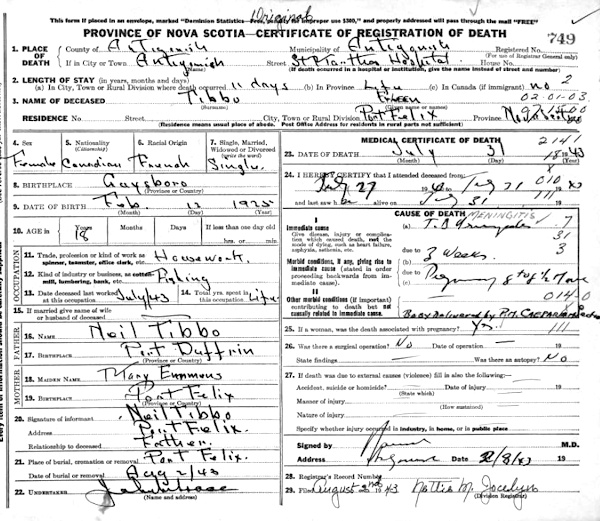 Original
This form if placed in an envelope, marked "Dominion Statistics—Free, and properly addressed will pass through the mail "FREE"
PROVINCE OF NOVA SCOTIA—CERTIFICATE OF REGISTRATION OF DEATH
749
1. PLACE OF DEATH County of Antigonish Municipality of Antigonish Registered No.
(For use of Registrar General only)
If in City or Town Antigonish Street St Martha Hospital House No.
(If death occurred in a hospital or institution, give the name instead of street and number)
2. LENGTH OF STAY (in years, months and days)
(a) In City, Town or Rural Division where death occurred 11 days (b) In Province Life (c) In Canada (if immigrant) no 2
3. NAME OF DECEASED Tibbo Eileen 02-01-03
(Surname) (Given name or names)
RESIDENCE No. Street City, Town or Rural Division Port Felix Province
(Residence means usual place of abode. Post Office Address for residents in rural parts not sufficient)
4. Sex 5. Nationality (Citizenship) 6. Racial Origin 7. Single, Married, Widowed or Divorced (write the word)
Female Canadian French Single
8. BIRTHPLACE Guysboro
(Province or Country)
9. DATE OF BIRTH Feb. 12 1925
(Month) (Day) (Year)
10. AGE Years 18 Months Days If less than one day old
hrs. or min.
OCCUPATION
11. Trade, profession or kind of work as spinner, teamster, office clerk, etc. Housework.
12. Kind of industry or business, as cotton mill, lumbering, bank, etc. Fishing
13. Date deceased last worked at this occupation July/43 14. Total yrs. spent in this occupation Life
15. If married give name of wife or husband of deceased
FATHER
16. NAME Neil Tibbo
17. BIRTHPLACE Port Duffrin
(Province or Country)
MOTHER
18. MAIDEN NAME Mary Emmons
19. BIRTHPLACE Port Felix
(Province or Country)
20. Signature of informant Neil Tibbo
Address Port Felix.
Relationship to deceased Father.
21. Place of burial, cremation or removal Port Felix.
Date of burial or removal Aug 2/43
22. UNDERTAKER
(Name and address)
MEDICAL CERTIFICATE OF DEATH 2141
23. DATE OF DEATH July 31 1943
(Month) (Day)
24. I HEREBY CERTIFY that I attended deceased from:
July 27 19 to July 31 19
and last saw h alive on July 31 19
CAUSE OF DEATH
I
Immediate cause
Give disease, injury or complication which caused death, not the mode of dying, such as heart failure, asphyxia, asthenia, etc.
(a) T.B MENINGITIS 7
due to 31
3 Weeks 3
Morbid conditions, if any, giving rise to immediate cause (stated in order proceeding backwards from immediate).
due to
(c) Pregnancy 8 to 8½ Mons
II
Other morbid conditions (if important) contributing to death but not causally related in immediate cause.
Baby Delivered by P.M. CAESARIAN
25. If a woman, was the death associated with pregnancy? Yes. 111
26. Was there a surgical operation? No Date of operation — 19
State findings — Was there an autopsy? No
27. If death was due to external causes (violence) fill in also the following:—
Accident, suicide or homicide? Date of injury 19
(State which)
Manner of injury
(How sustained)
Nature of injury
Specify whether injury occurred in industry, in home, or in public place
Signed by M.D.
Address Date 2/8/43 19
28. Registrar's Record Number
29. Filed August 2nd 1943 Nettie M. Jocelyn
(Division Registrar)